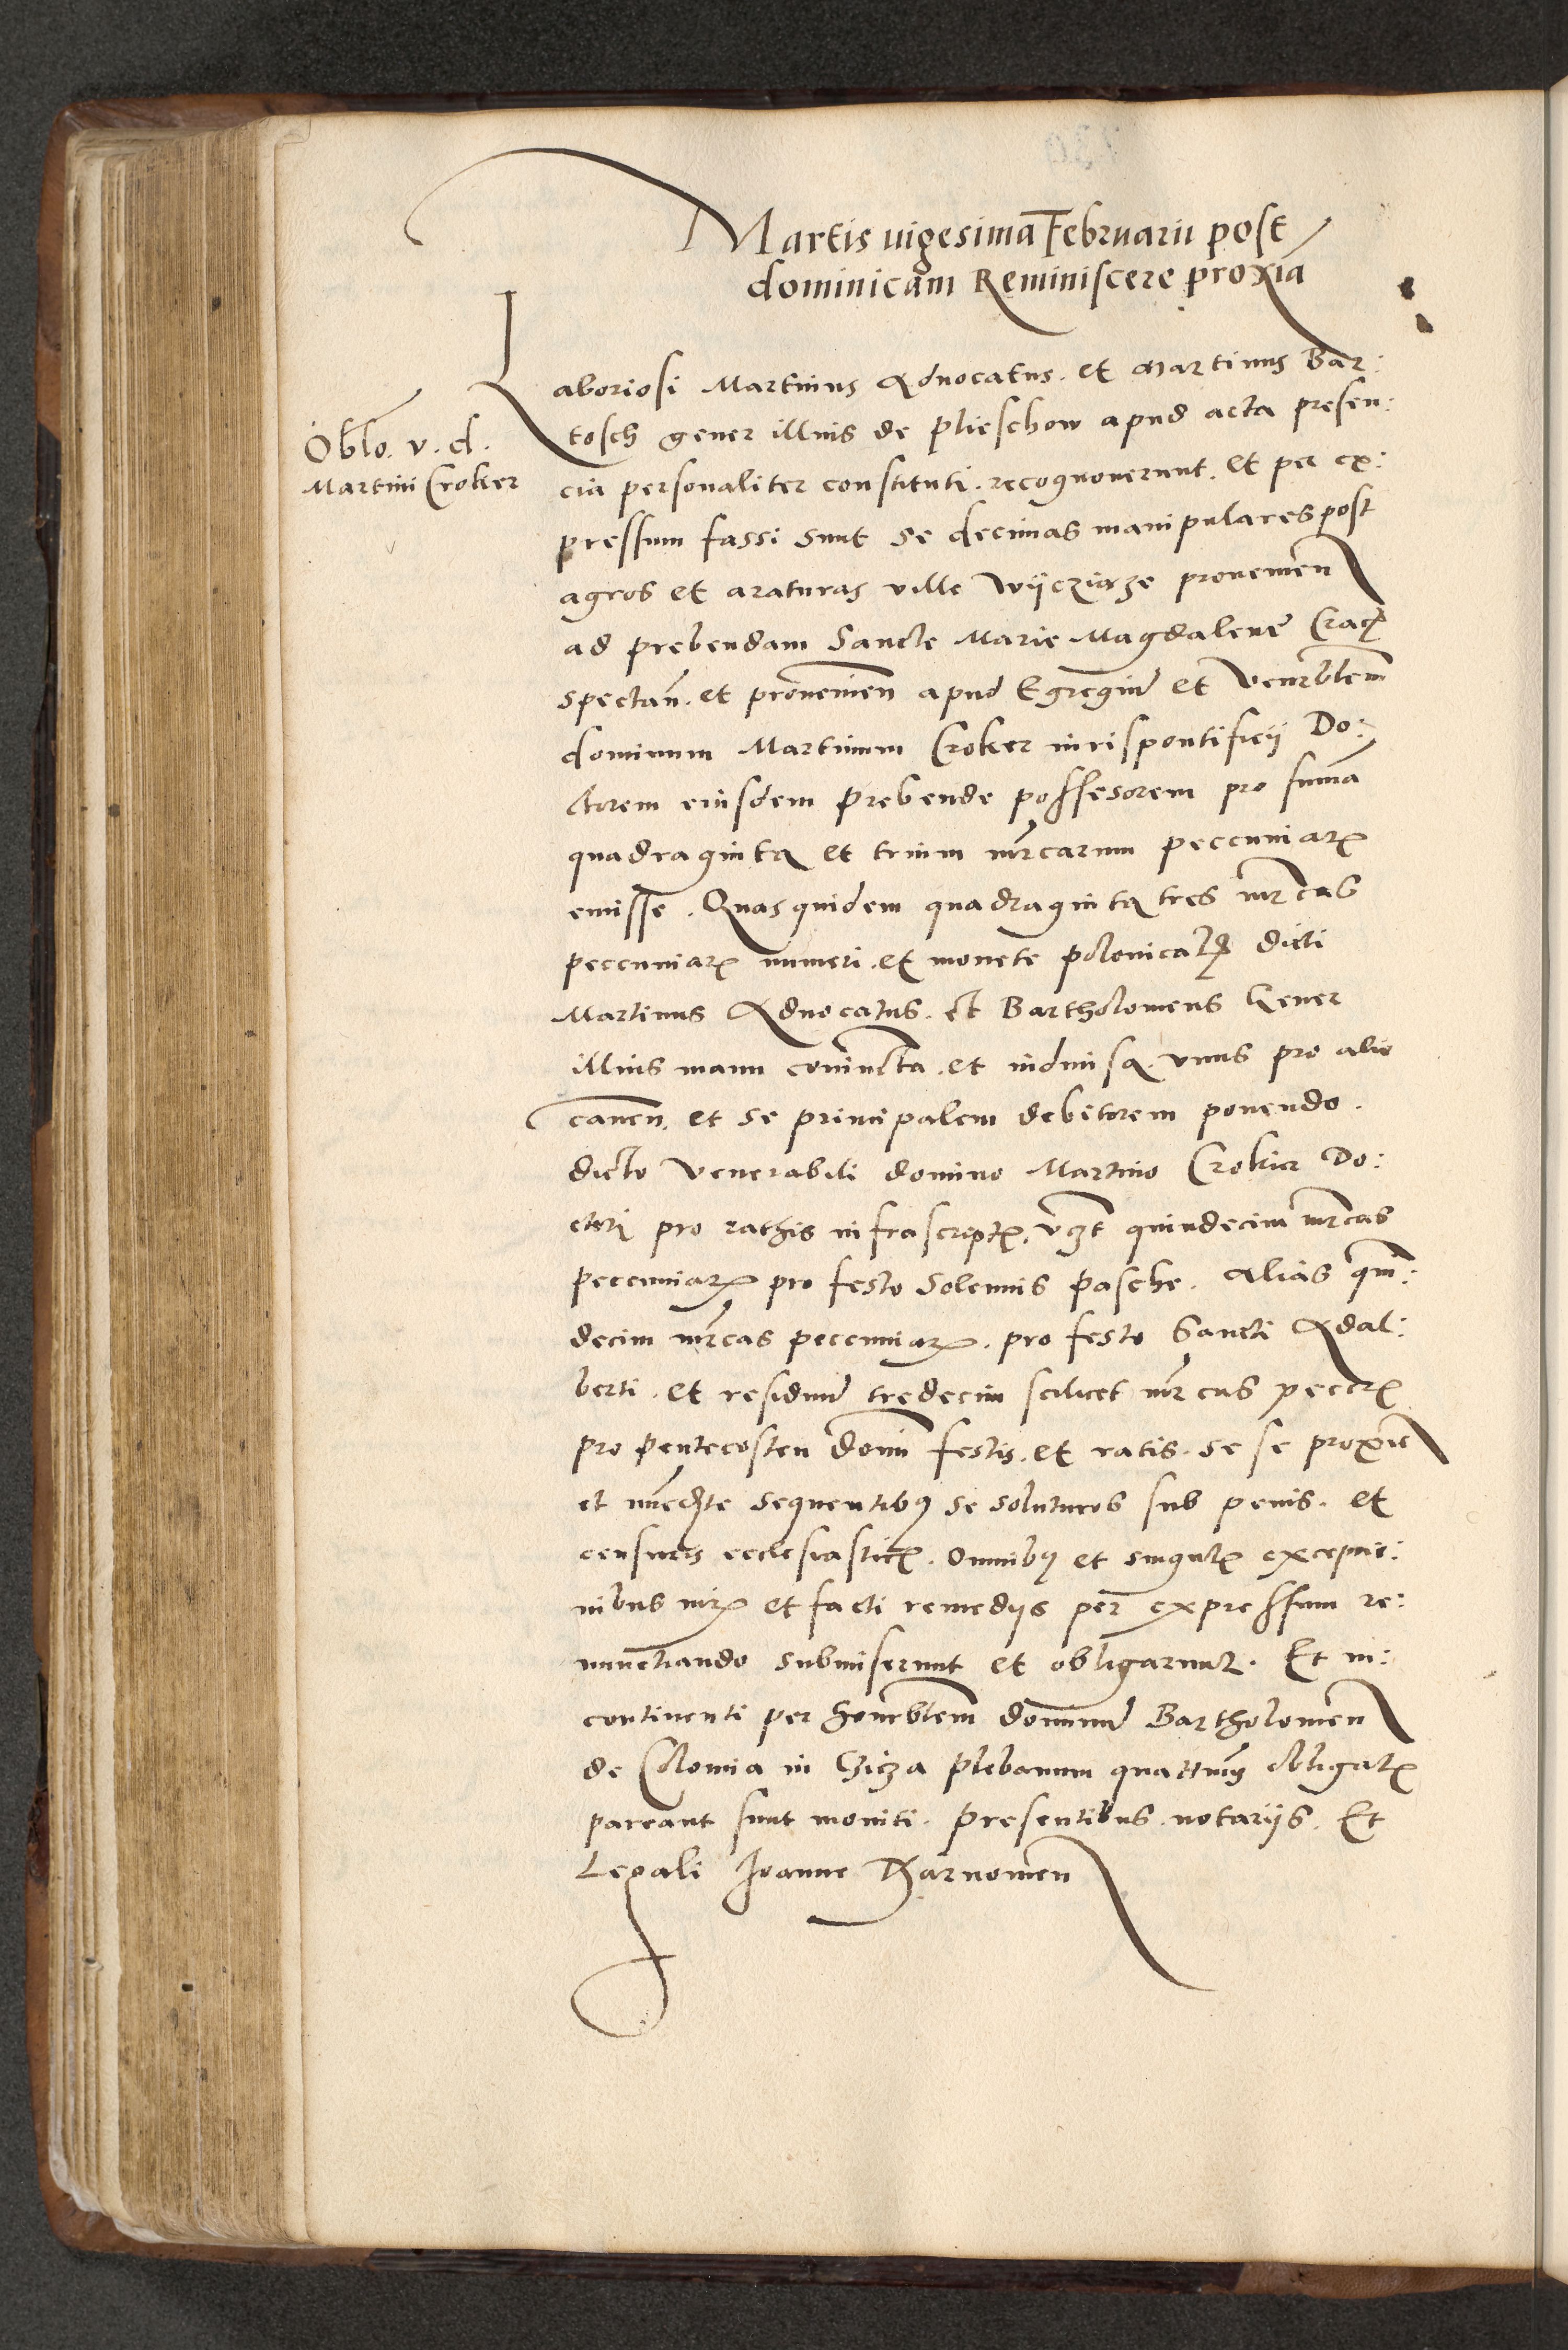 Martis vigesima Februarii post
dominicam Reminiscere proxīa
Laboriosi Martinus Advocatus. et Martinus Bar:
tosch gener illius de Plieschow apud acta presen:
Oblo. v. d.
Martini Croker
cia personaliter constituti. recognoverunt. et per ex:
pressum fassi sunt se decimas manipulares post
agros et araturas ville Wÿcziąze provenien
ad prebendam Sancte Marie Magdalene Crac
spectan. et provenien apud Egregiū et Venerblem
dominum Martinum Croker iuris pontificii Do:
ctorem eiusdem prebende possesorem pro suma
quadraginta et trium mrcarum peccuniar
emisse. Quas quidem quadraginta tres mrcas
peccuniar numeri. et monete polonical dicti
Martinus Advocatus. et Bartholomeus Gener
illius manu coniuncta. et indivisa. unus pro alio
caven. et se principalem debitorem ponendo.
dicto Venerabili domino Martino Crokier Do:
ctori pro rathis infrascript. vczt quindecim mrcas
peccuniar pro festo Solennis Pasche. Alias quin:
decim mrcas peccuniar. pro festo Sancti Adal:
berti. et residuū tredecim scilicet mrcas peccr
pro Pentecosten domi festis. et ratis. se se proxie
et imedte sequentibus se soluturos sub penis. et
censuris ecclesiastic. Omnibus et singul excepcio:
nibus iur et facti remediis per expressum re:
nunctiando submiserunt et obligarunt. Et in:
continenti per honeblem dominū Bartholomeu
de Colomia in Giza Plebanum quattinus obligat
pareant sunt moniti. Presentibus. notariis. Et
Legali Joanne Tharnomen